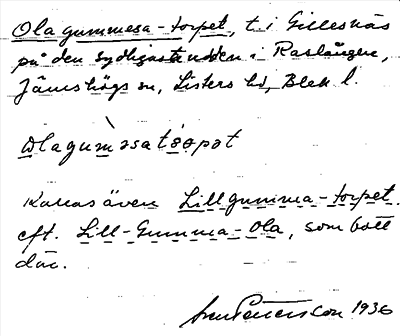 Olagummesa-torpet, t. i Gillesnäs
på den sydligaste udden i Raslången,
Jämshögs sn, Listers hd, Blek l.
ɯlaguməsatɔ̀rpət
Kallas även Lillgumma-torpet.
eft. Lill-Gumma-Ola, som bott
där.
Sven Petersson 1936